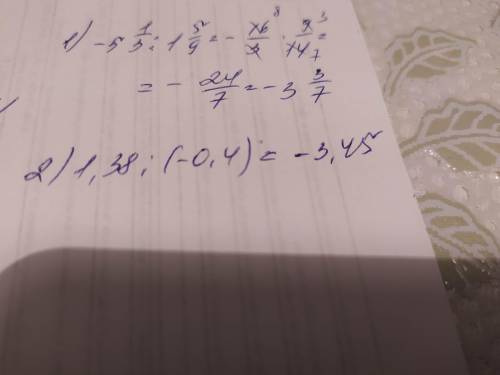 1) -5 1/3 : 1 5/9 = - 16/3 8 · 9/14 3 7 =
= - 24/7 = -3 3/7
2) 1,38 : (-0,4) = -3,45